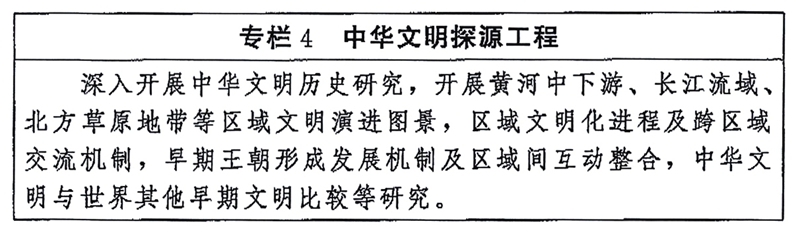 专栏4 中华文明探源工程
深入开展中华文明历史研究，开展黄河中下游、长江流域、
北方草原地带等区域文明演进图景，区域文明化进程及跨区域
交流机制，早期王朝形成发展机制及区域间互动整合，中华文
明与世界其他早期文明比较等研究。